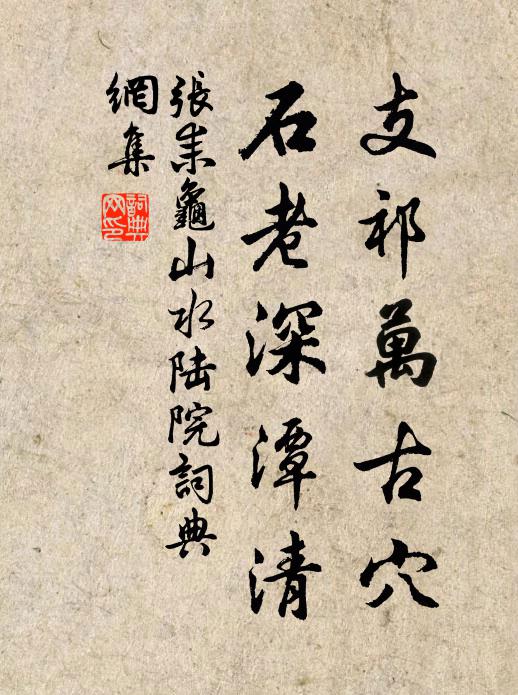 支祁萬古穴
石老深潭清
張耒龜山水陆院詞典
網集
詞典
网印